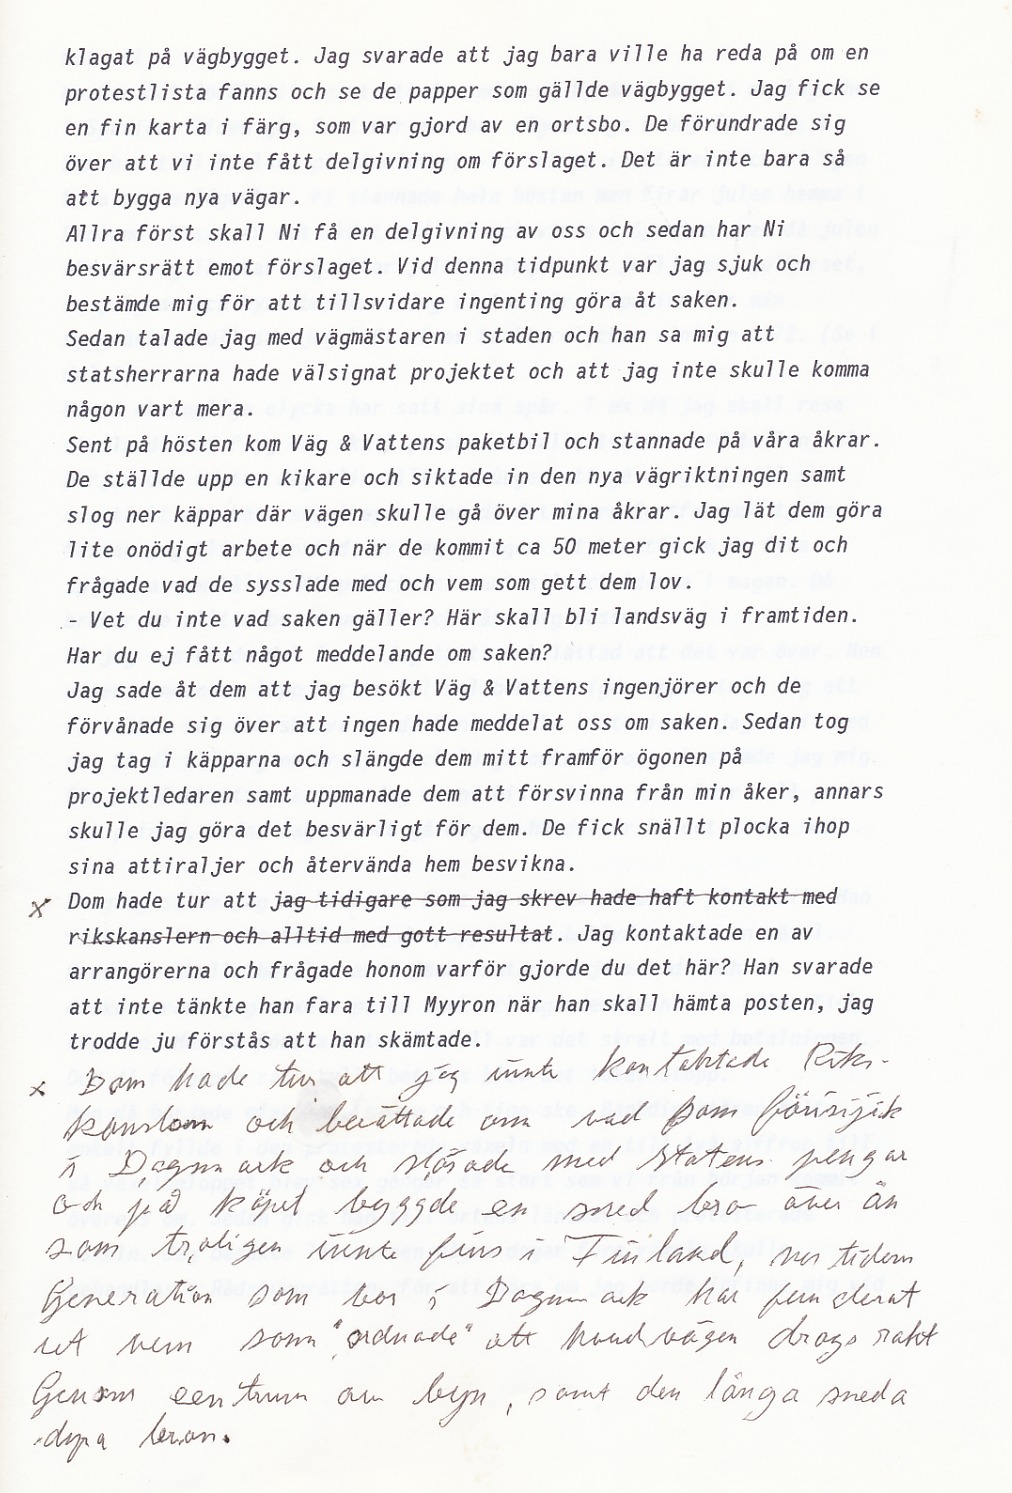 klagat på vägbygget. Jag svarade att jag bara ville ha reda på om en
protestlista fanns och se de papper som gällde vägbygget. Jag fick se
en fin karta i färg, som var gjord av en ortsbo. De förundrade sig
över att vi inte fått delgivning om förslaget. Det är inte bara så
att bygga nya vägar.
Allra först skall Ni få en delgivning av oss och sedan har Ni
besvärsrätt emot förslaget. Vid denna tidpunkt var jag sjuk och
bestämde mig för att tillsvidare ingenting göra åt saken.
Sedan talade jag med vägmästaren i staden och han sa mig att
statsherrarna hade välsignat projektet och att jag inte skulle komma
någon vart mera.
Sent på hösten kom Väg & Vattens paketbil och stannade på våra åkrar.
De ställde upp en kikare och siktade in den nya vägriktningen samt
slog ner käppar där vägen skulle gå över mina åkrar. Jag lät dem göra
lite onödigt arbete och när de kommit ca 50 meter gick jag dit och
frågade vad de sysslade med och vem som gett dem lov.
- Vet du inte vad saken gäller? Här skall bli landsväg i framtiden.
Har du ej fått något meddelande om saken?
Jag sade åt dem att jag besökt Väg & Vattens ingenjörer och de
förvånade sig över att ingen hade meddelat oss om saken. Sedan tog
jag tag i käpparna och slängde dem mitt framför ögonen på
projektledaren samt uppmanade dem att försvinna från min åker, annars
skulle jag göra det besvärligt för dem. De fick snällt plocka ihop
sina attiraljer och återvända hem besvikna.
x Dom hade tur att jag tidigare som jag skrev hade haft kontakt med
rikskanslern och alltid med gott resultat. Jag kontaktade en av
arrangörerna och frågade honom varför gjorde du det här? Han svarade
att inte tänkte han fara till Myyron när han skall hämta posten, jag
trodde ju förstås att han skämtade.
x Dom hade tur att jag inte kontaktade Riks-
kanslern och berättade om vad som försigik
i Dagsmark och slösade med statens pengar
och på köpet byggde en sned bro över ån
som troligen inte fins i Finland,
Generation som bor i Dagsmark har funderat
vem som "ordnade" att landsvägen drogs rakt
Genom centrum av byn, samt den långa sneda
dyra bron.